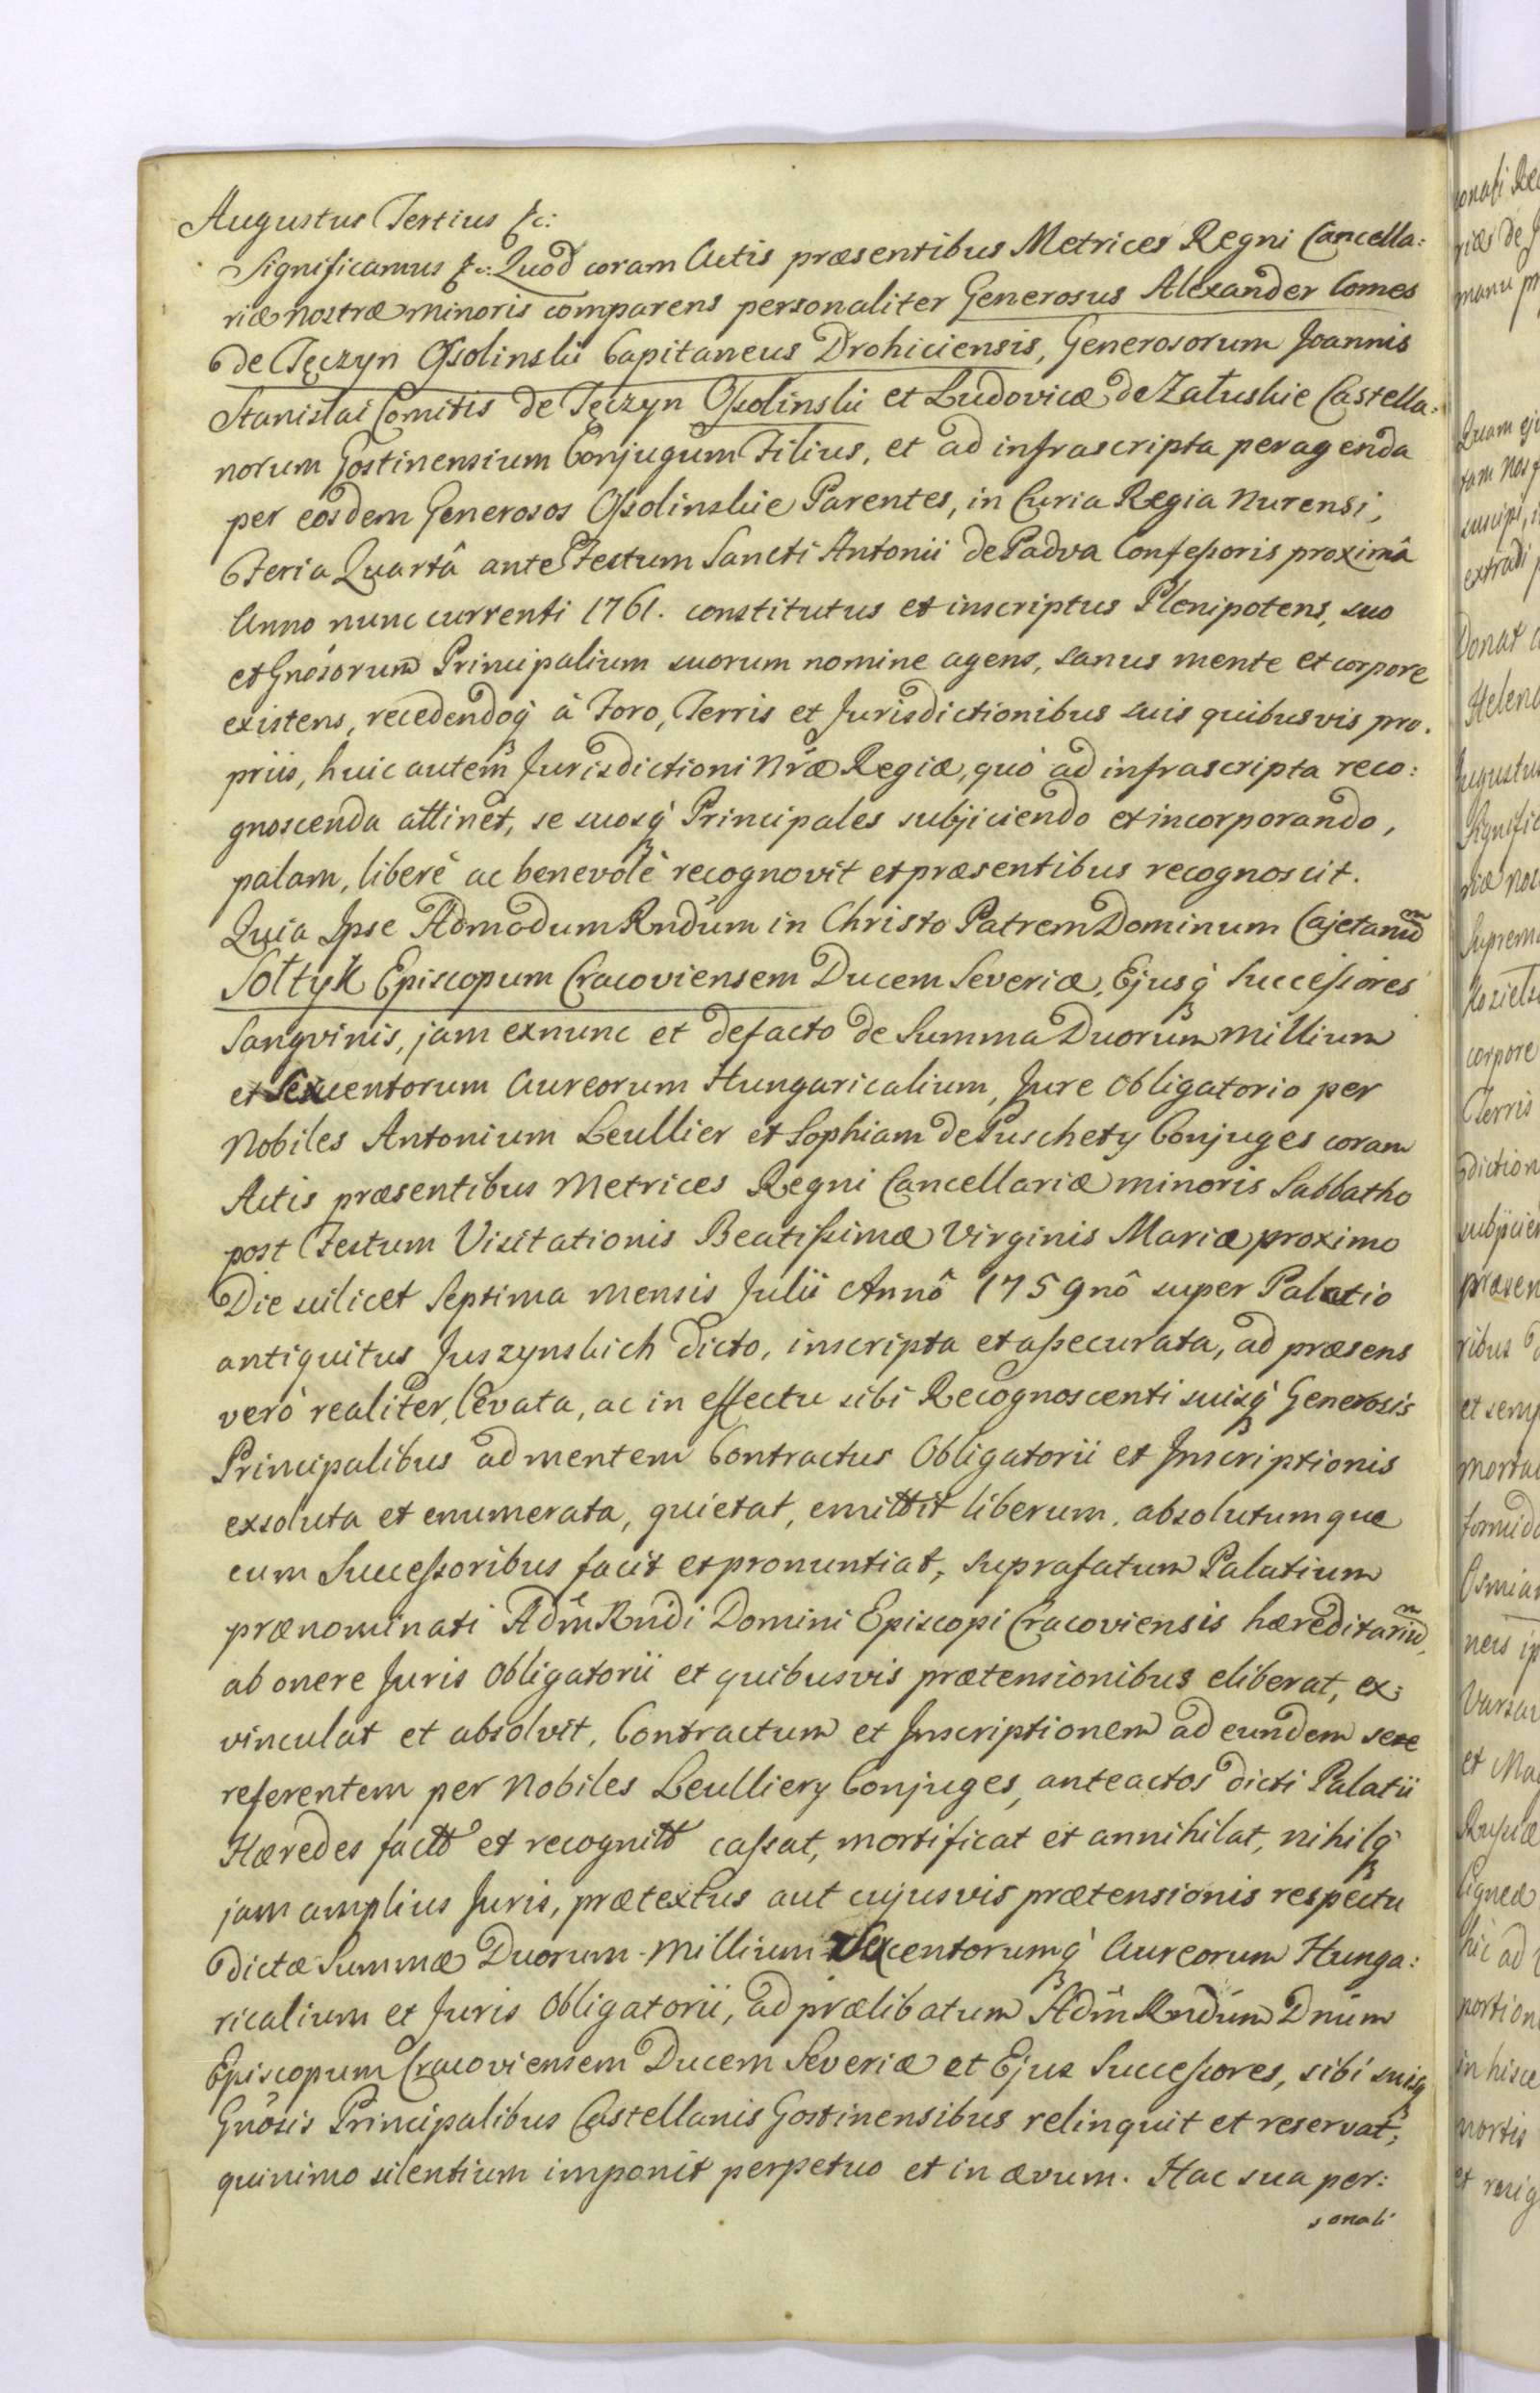 Augustus Tertius &c:
Significamus &c: Quod coram Actis præsentibus Metrices Regni Cancella:
riæ nostræ minoris comparens personaliter Generosus Alexander Comes
de Tęczyn Ossolinski Capitaneus Drohiciensis, Generosorum Joannis
Stanislai Comitis de Tęczyn Ossolinski et Ludovicæ de Załuskie Castella:
norum Gostinensium Conjugum Filius, et ad infrascripta peragenda
per eosdem Generosos Ossolinskie Parentes, in Curia Regia Nurensi,
Feria Quartâ ante Festum Sancti Antonii de Padva Confessoris proximâ
Anno nunc currenti 1761. constitutus et inscriptus Plenipotens, suo
et Gnosorum Principalium suorum nomine agens, sanus mente et corpore
existens, recedendoq̃ à Foro, Terris et Jurisdictionibus suis quibusvis pro.
priis, huic autem Jurisdictioni Nr̃æ Regiæ, quò ad infrascripta reco:
gnoscenda attinet, se suosq̃ Principales subjiciendo et incorporando,
palam, liberè ac benevolè recognovit et præsentibus recognoscit.
Quia Ipse Admodum Rndum in Christo Patrem Dominum Cajetanũ
Sołtyk Episcopum Cracoviensem Ducem Severiæ, Ejusq̃ Successores
Sangvinis, jam exnunc et defacto de Summa Duorum Millium
et Sexcentorum Aureorum Hungaricalium, Jure Obligatorio per
Nobiles Antonium Leullier et Sophiam de Puschety Conjuges coram
Actis præsentibus Metrices Regni Cancellariæ minoris Sabbatho
post Festum Visitationis Beatissimæ Virginis Mariæ proximo
Die scilicet Septima mensis Julii Annô 1759nô super Palatio
antiquitus Juszynskich dicto, inscripta et assecurata, ad præsens
verò realiter, levata, ac in effectu sibi Recognoscenti suisq̃ Generosis
Principalibus ad mentem Contractus Obligatorii et Inscriptionis
exsoluta et enumerata, quietat, emittit liberum, absolutumque
cum Successoribus facit et pronuntiat, suprafatum Palatium
prænominati Adm̃ Rndi Domini Episcopi Cracoviensis hæreditariũ,
ab onere Juris Obligatorii et quibusvis prætensionibus eliberat, ex:
vinculat et absolvit, Contractum et Inscriptionem ad eundem sese
referentem per Nobiles Leulliery Conjuges, anteactos dicti Palatii
Hæredes factt et recognitt cassat, mortificat et annihilat, nihilq̃
jam amplius Juris, prætextus aut cujusvis prætensionis respectu
dictæ Summæ Duorum Millium Sexcentorumq̃ Aureorum Hunga:
ricalium et Juris Obligatorii, ad prælibatum Adm̃ Rndum Dnum
Episcopum Cracoviensem Ducem Severiæ et Ejus Successores, sibi suisq̃
Gnosis Principalibus Castellanis Gostinensibus relinquit et reservat;
quinimo silentium imponit perpetuo et in ævum. Hac sua per:
sonali